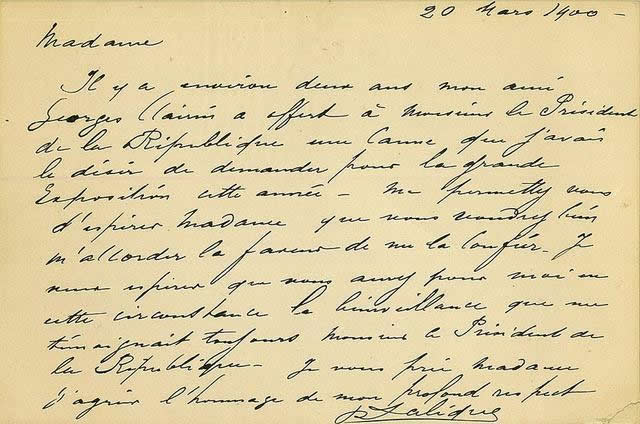 20 Mars 1900 -
Madame
Il y a environ deux ans mon ami
Georges Clairin a offert à Monsieur le Président
de la République une Canne que j'avais
le désir de demander pour la grande
Exposition cette année - Me permettez vous
d'espérer Madame que vous voudrez bien
m'accorder la faveur de me la confier. Je
veux espérer que vous aurez pour moi en
cette circonstance la bienveillance que me
témoignait toujours Monsieur le Président de
la République - Je vous prie Madame
d'agréer l'hommage de mon profond respect